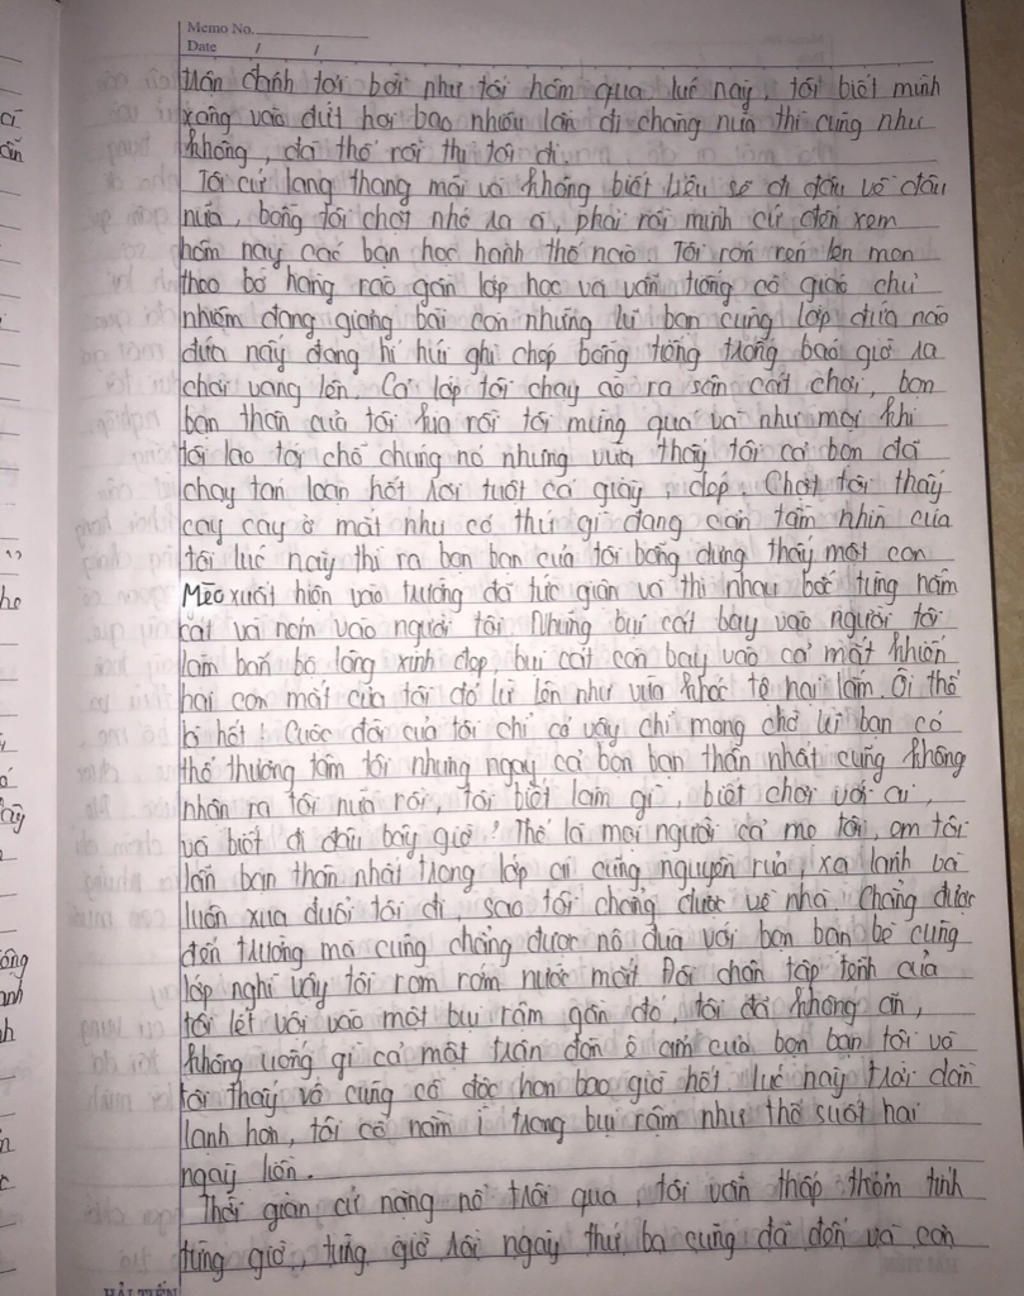 Memo No.
Date / /
trán đánh tơi bời như tối hôm qua lúc này, tôi biết mình
xông vào dứt hơi bao nhiêu lần đi chăng nữa thì cũng như
không, đã thế rồi thì tôi đi.
Tôi cứ lang thang mãi và không biết liệu sẽ đi đâu về đâu
nữa, bỗng tôi chợt nhớ ra a, phải rồi mình cứ đến xem
hôm nay các bạn học hành thế nào. Tôi rón rén lên men
theo bờ hàng rào gần lớp học và vẫn tiếng cô giáo chủ
nhiệm đang giảng bài còn những lũ bạn cùng lớp đứa nào
đứa nấy đang hí húi ghi chép bỗng tiếng trống báo giờ ra
chơi vang lên. Cả lớp tôi chạy ào ra sân cát chơi, bọn
bạn thân của tôi kia rồi tôi mừng quá và như mọi khi
tôi lao tới chỗ chúng nó nhưng vừa thấy tôi cả bọn đã
chạy tán loạn hết rơi tuột cả giày, dép. Chợt tôi thấy
cay cay ở mắt như có thứ gì đang cản tầm nhìn của
tôi lúc này thì ra bọn bạn của tôi bỗng dưng thấy một con
Mèo xuất hiện vào trường đã tức giận và thi nhau bốc từng nắm
cát và ném vào người tôi. Những bụi cát bay vào người tôi
làm bẩn bộ lông xinh đẹp, bụi cát còn bay vào cả mắt khiến
hai con mắt của tôi đỏ lừ lên như vừa khóc tệ hại lắm. Ôi thế
là hết! Cuộc đời của tôi chỉ có vậy chỉ mong chờ lũ bạn có
thể thương tâm tôi nhưng ngay cả bọn bạn thân nhất cũng không
nhận ra tôi nữa rồi, tôi biết làm gì, biết chơi với ai,
và biết đi đâu bây giờ? Thế là mọi người cả mẹ tôi, em tôi
lẫn bạn thân nhất trong lớp ai cũng nguyền rủa, xa lánh và
luôn xua đuổi tôi đi, sao tôi chẳng được về nhà. Chẳng được
đến trường mà cũng chẳng được nô đùa với bọn bạn bè cùng
lớp nghĩ vậy tôi rơm rớm nước mắt. Đôi chân tập tễnh của
tôi lết vội vào một bụi rậm gần đó, tôi đã không ăn,
không uống gì cả một trận đòn ê ẩm của bọn bạn tôi và
tôi thấy vô cùng cô độc hơn bao giờ hết. lúc này trời dần
lạnh hơn, tôi cố nằm ì trong bụi rậm như thế suốt hai
ngày liền.
Thời gian cứ nặng nề trôi qua, tôi vẫn thấp thỏm tính
từng giờ, từng giờ rồi ngày thứ ba cũng đã đến và còn
HẢI TIẾN